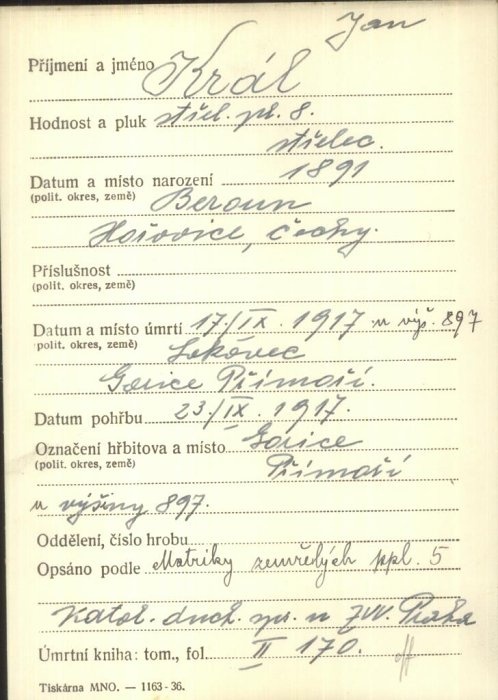 Jan
Příjmení a jméno Král
Hodnost a pluk střel. pl. 8.
střelec.
Datum a místo narození 1891
(polit. okres, země) Beroun
Hořovice, Čechy.
Příslušnost
(polit. okres, země)
Datum a místo úmrtí 17./IX. 1917 u výš. 897
(polit. okres, země) Lokovec
Gorice Přímoří.
Datum pohřbu 23/IX. 1917.
Označení hřbitova a místo Gorice
(polit. okres, země) Přímoří
u výšiny 897.
Oddělení, číslo hrobu
Opsáno podle Matriky zemřelých ppl. 5
Katol. duch. spr. u ZVV. Praha
Úmrtní kniha: tom., fol. II 170.
Tiskárna MNO. — 1163-36.